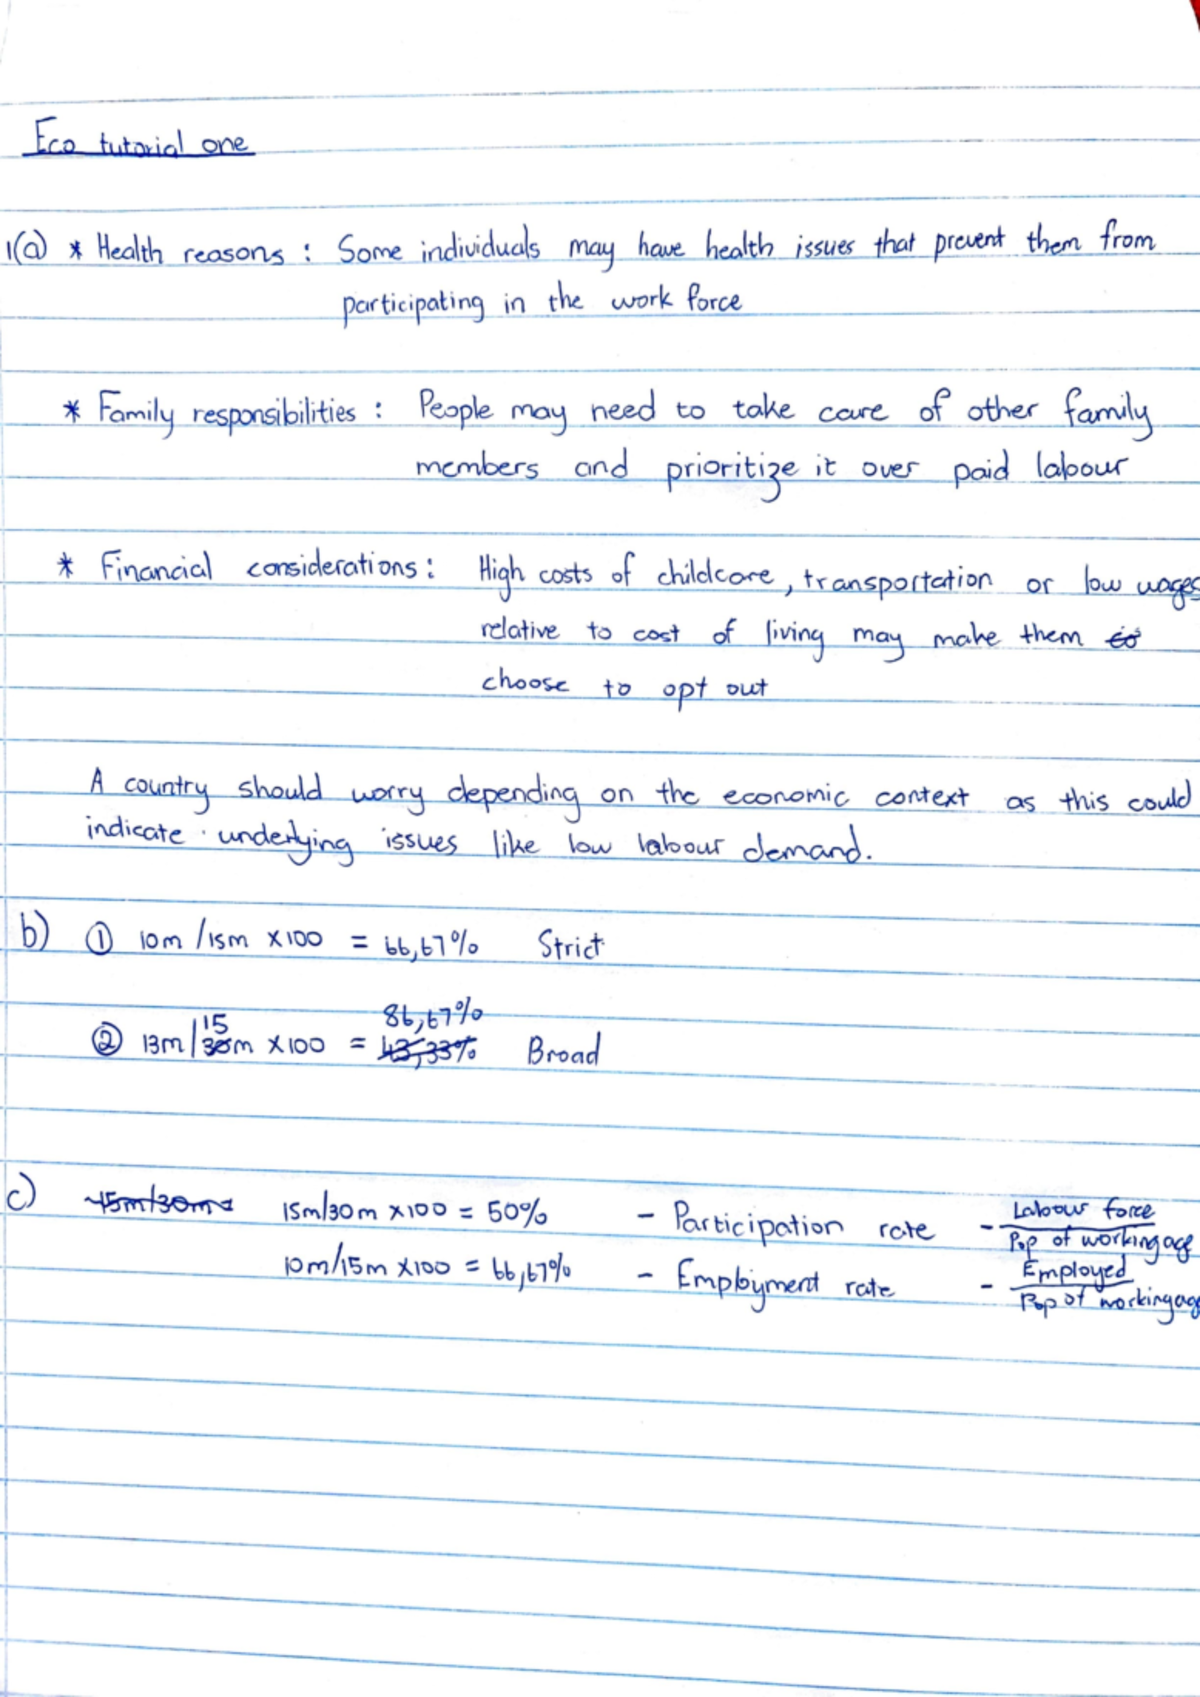 Eco tutorial one
1(a) * Health reasons : Some individuals may have health issues that prevent them from
participating in the work force
* Family responsibilities : People may need to take care of other family
members and prioritize it over paid labour
* Financial considerations : High costs of childcare, transportation or low wages
relative to cost of living may make them to
choose to opt out
A country should worry depending on the economic context as this could
indicate underlying issues like low labour demand.
b) ① 10m /15m x100 = 66,67% Strict
15 86,67%
② 13m/30m x100 = 43,33% Broad
c) 15m/30m 15m/30m x100 = 50% - Participation rate - Labour force
Pop of working age
10m/15m x100 = 66,67% - Employment rate - Employed
Pop of working age